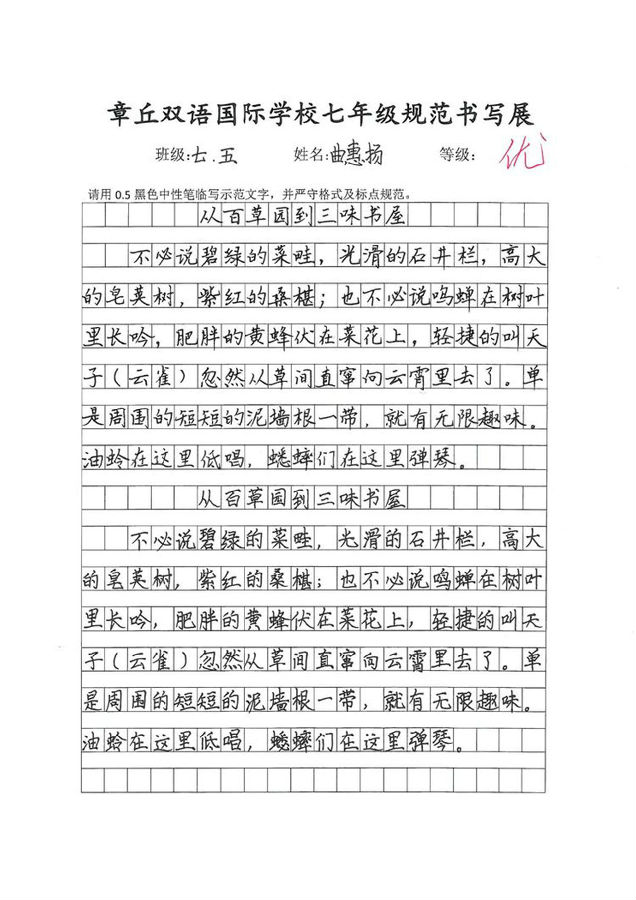 章丘双语国际学校七年级规范书写展
班级:七.五 姓名:曲惠扬 等级: 优
请用0.5黑色中性笔临写示范文字，并严守格式及标点规范。
从百草园到三味书屋
不必说碧绿的菜畦，光滑的石井栏，高大
的皂荚树，紫红的桑椹；也不必说鸣蝉在树叶
里长吟，肥胖的黄蜂伏在菜花上，轻捷的叫天
子（云雀）忽然从草间直窜向云霄里去了。单
是周围的短短的泥墙根一带，就有无限趣味。
油蛉在这里低唱，蟋蟀们在这里弹琴。
从百草园到三味书屋
不必说碧绿的菜畦，光滑的石井栏，高大
的皂荚树，紫红的桑椹；也不必说鸣蝉在树叶
里长吟，肥胖的黄蜂伏在菜花上，轻捷的叫天
子（云雀）忽然从草间直窜向云霄里去了。单
是周围的短短的泥墙根一带，就有无限趣味。
油蛉在这里低唱，蟋蟀们在这里弹琴。